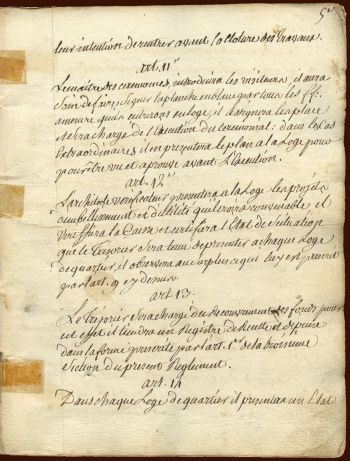 5e
leur intention de rentrer avant la cloture des travaux.
art. 11e
Le maitre des ceremonies, introduira les visiteurs, il aura
soin de faire signer la planche en blanc par tous les ff∴
a mesure quils entreront en loge, il assignera les place
et sera chargé de l'execution du ceremonial: dans les cas
Extraordinaires il en presentera le plan a la Loge pour
y être vu et aprouvé avant l'execution.
art. 12e
L'architecte verificateur presentera a la Loge les projets
dembellissement et il
verifiera la Caisse et certifiera l'Etat de Situation
que le Tresorier sera tenu de presenter a chaque Loge
de quartier, il observera au surplus ce qui luy est prescrit
par l'art. 9 cy dernier.
art 13.
Le Tresorier sera chargé du Recouvrement des fonds, pour
cet effet il tiendra un Registre de Recette et depense
dans la forme prescrite par l'art. 1er de la troisieme
Section du present Reglement.
art. 14
Dans chaque Loge de quartier il presentera un Etat